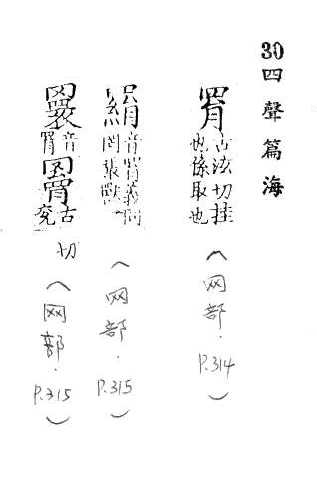 30四聲篇海
罥古泫切挂
也係取也
(网部.P.314)
音罥義同
网張獸
(网部.P.315)
音
罥
古
兖
切
(网部.P.315)